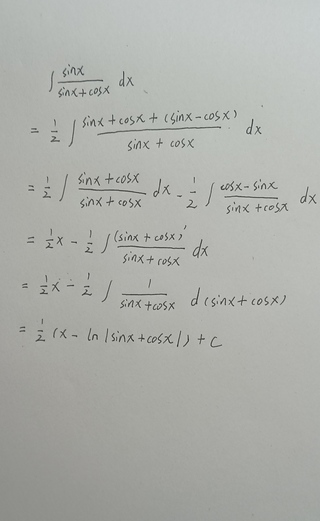 ∫ sinx/(sinx+cosx) dx
= 1/2 ∫ (sinx+cosx+(sinx-cosx))/(sinx+cosx) dx
= 1/2 ∫ (sinx+cosx)/(sinx+cosx) dx - 1/2 ∫ (cosx-sinx)/(sinx+cosx) dx
= 1/2 x - 1/2 ∫ (sinx+cosx)'/(sinx+cosx) dx
= 1/2 x - 1/2 ∫ 1/(sinx+cosx) d(sinx+cosx)
= 1/2 (x - ln|sinx+cosx|) + C